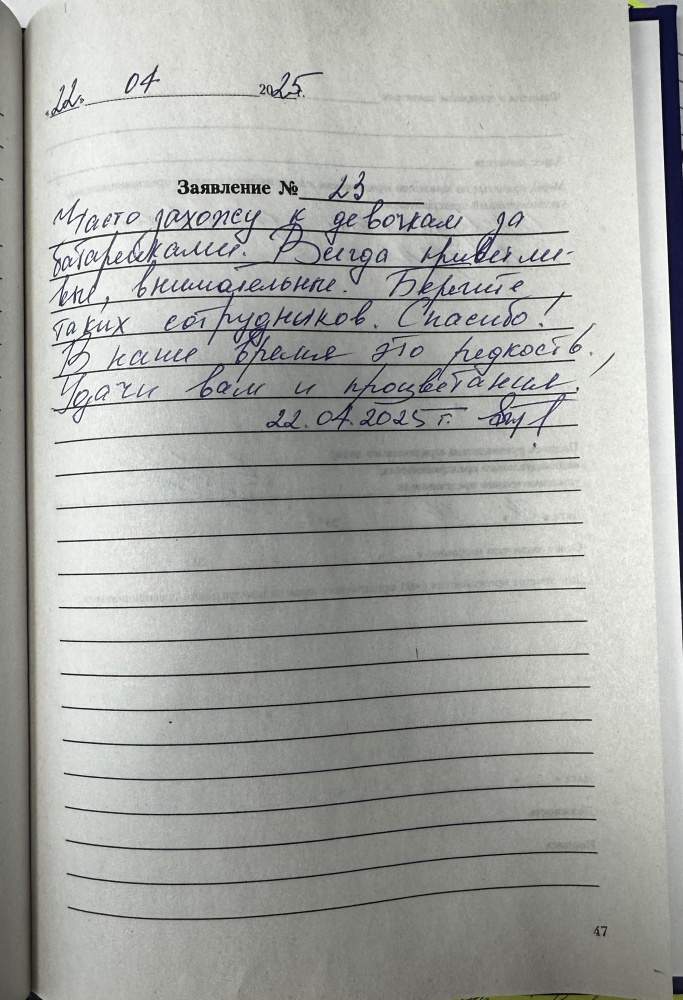 «22» 04 2025г.
Заявление № 23
Часто захожу к девочкам за
батарейками. Всегда приветли-
вые, внимательные. Берегите
таких сотрудников. Спасибо!
В наше время это редкость.
Удачи вам и процветания!
22.04.2025 г.
47